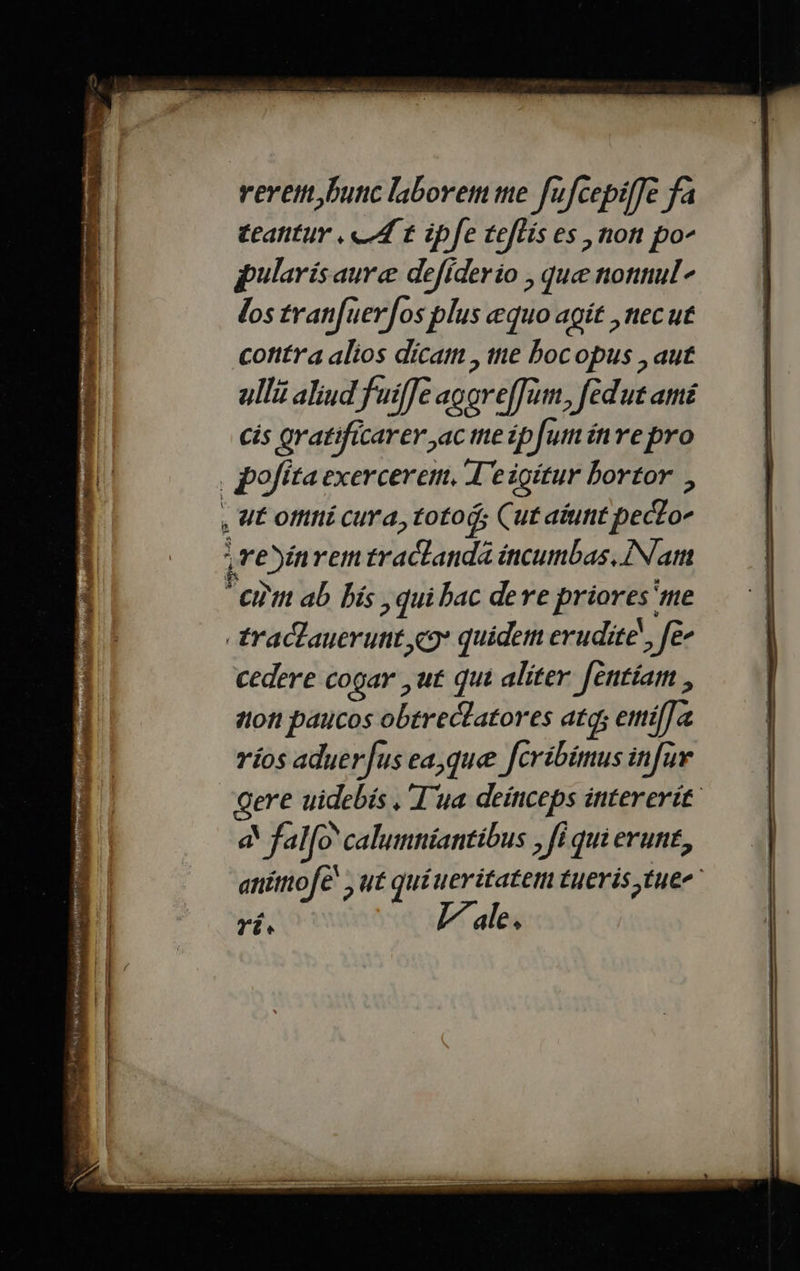 verem, hunc laborem me ſuſcepiſſe fa
teantur. At ipſe teſtis es, non po-
pularis auræ deſiderio, quæ nonnul-
los tranſuerſos plus æquo agit, nec ut
contra alios dicam, me hoc opus, aut
ullū aliud fuiſſe aggreſſum, ſed ut ami
cis gratificarer, ac me ipſum in re pro
poſita exercerem. Te igitur hortor,
ut omni cura, totoq; (ut aiunt pecto-
re) in rem tractandā incumbas. Nam
cùm ab his, qui hac de re priores me
tractauerunt, & quidem eruditè, ſe-
cedere cogar, ut qui aliter ſentiam,
non paucos obtrectatores atq; emiſſa
rios aduerſus ea, quæ ſcribimus inſur
gere uidebis. Tua deinceps intererit
à falſò calumniantibus, ſi qui erunt,
animoſè, ut qui ueritatem tueris, tue-
ri. Vale.